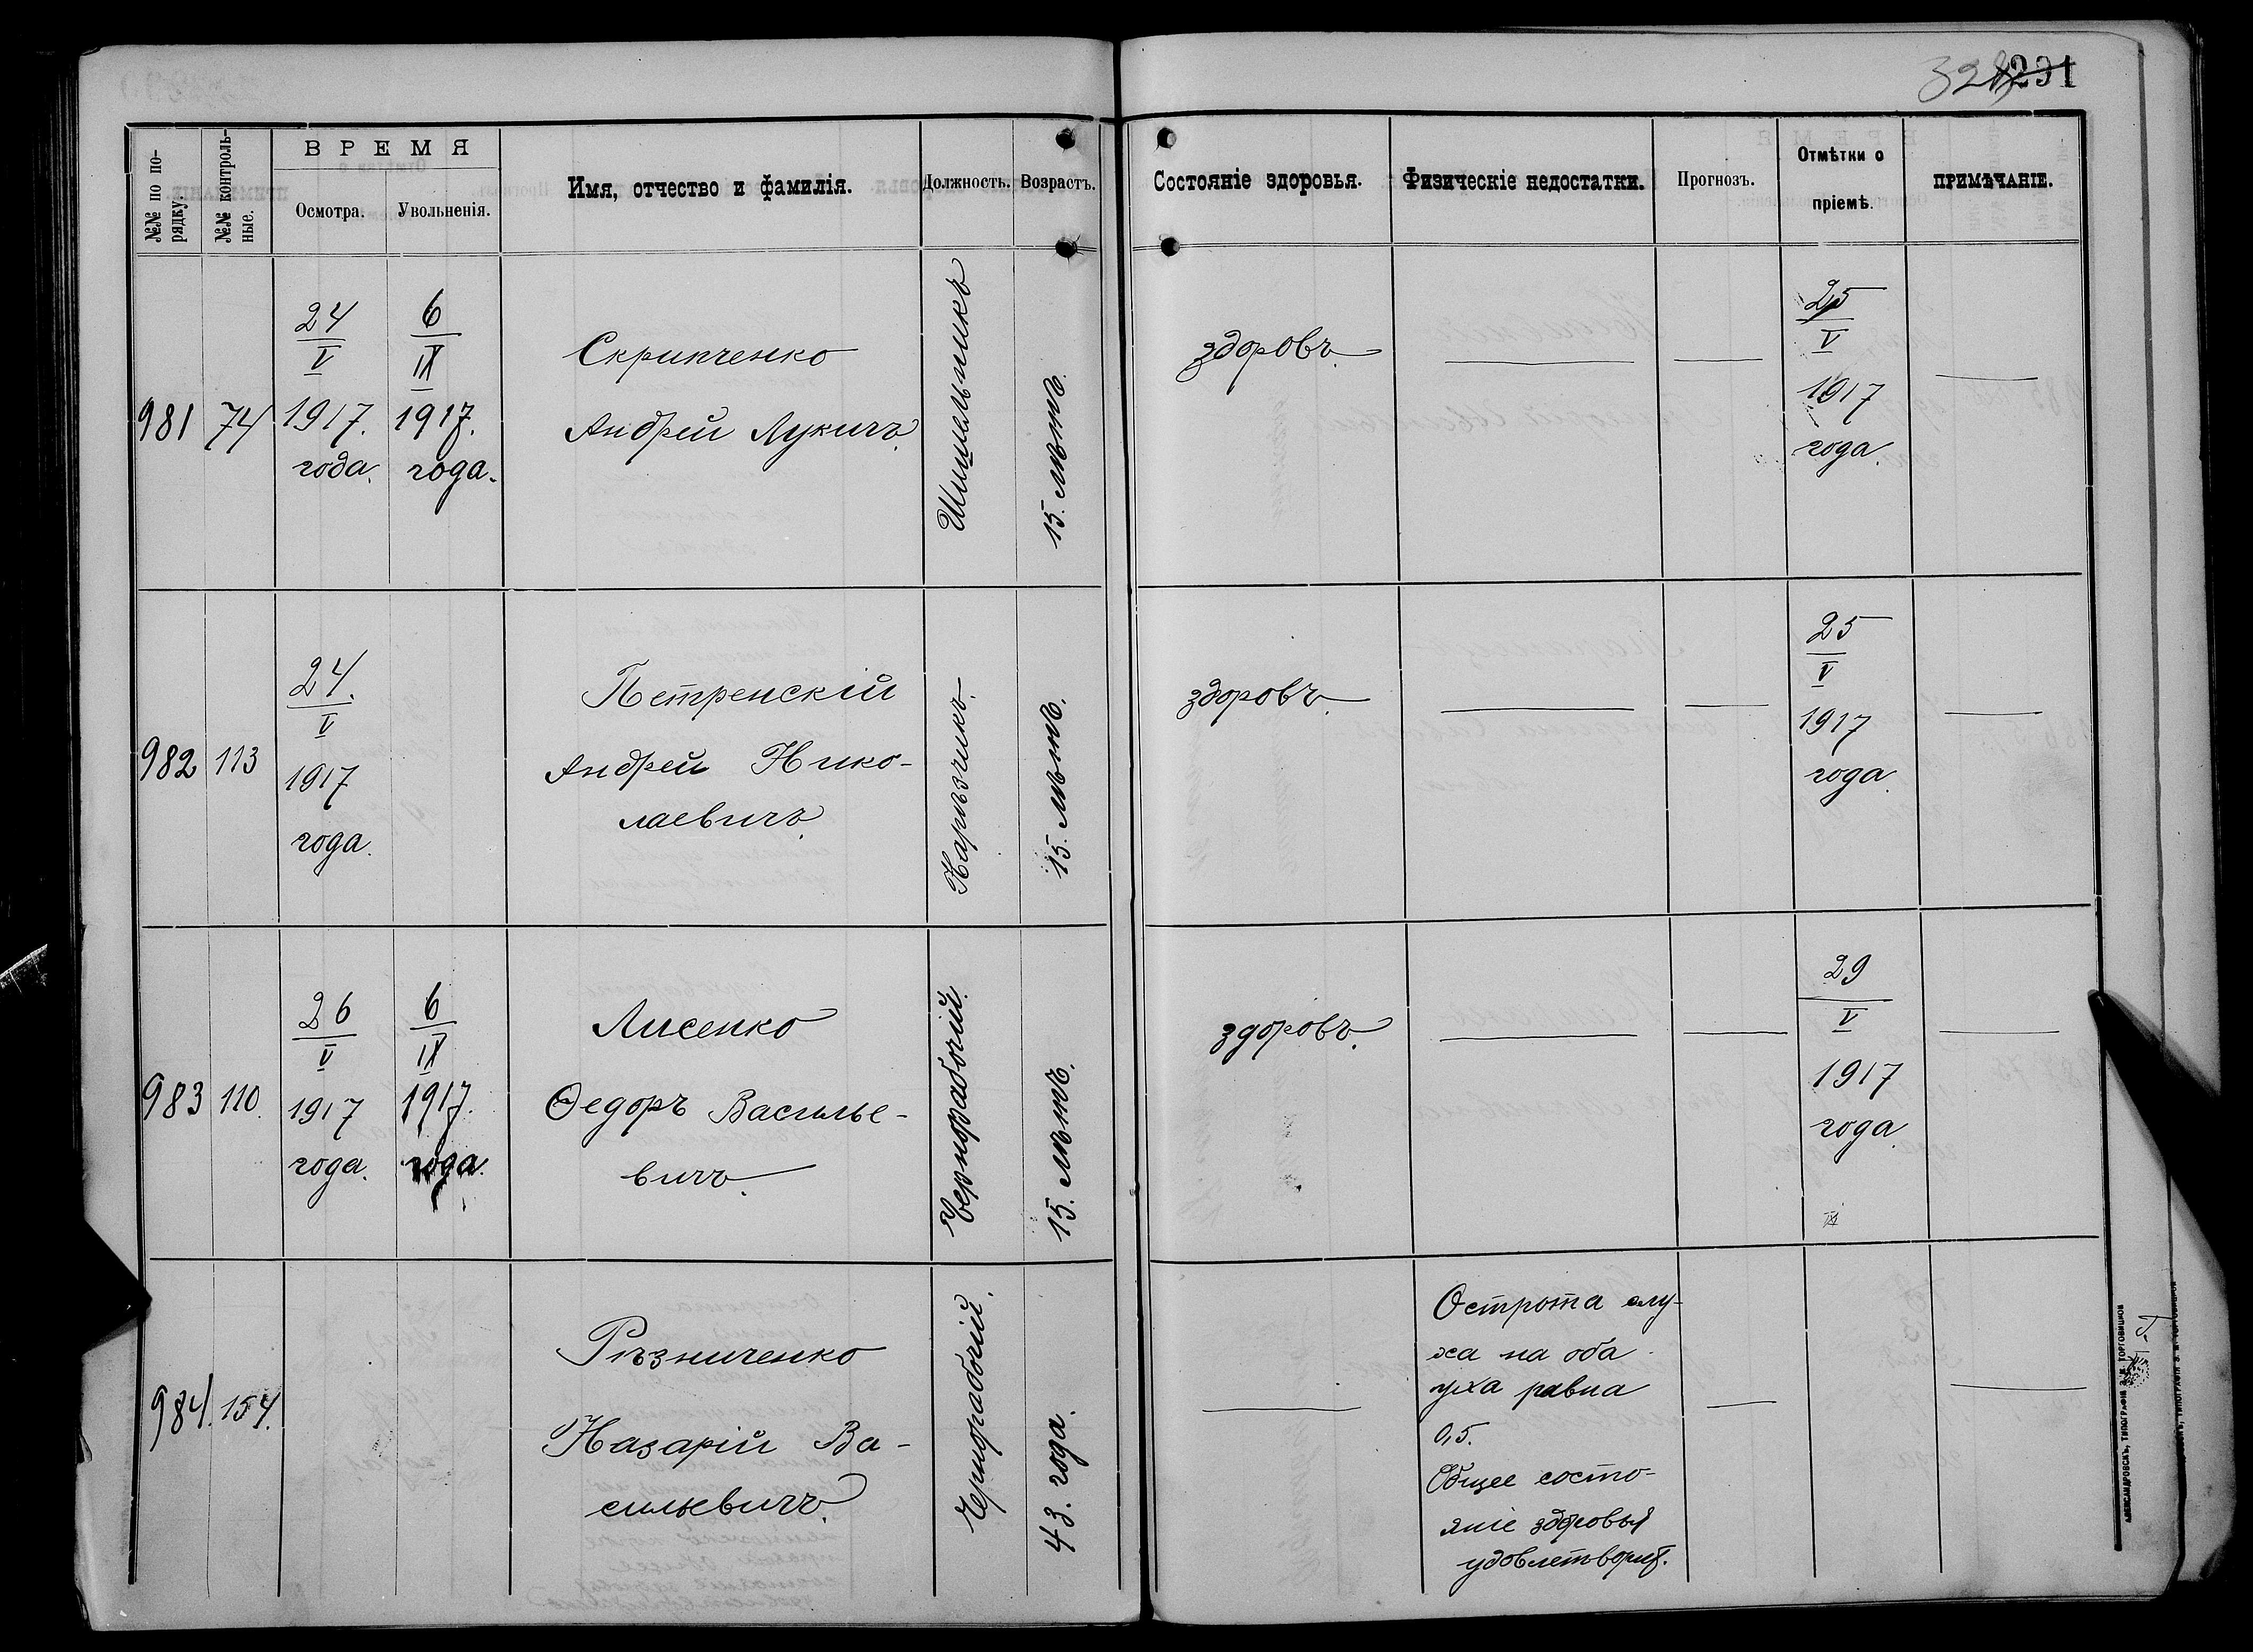 328
291
№№ по по-
рядку.
№№ контроль-
ные.
ВРЕМЯ
Осмотра.
Увольненія.
Имя, отчество и фамилія.
Должность.
Возрастъ.
Состояніе здоровья.
Физическіе недостатки.
Прогнозъ.
Отмѣтки о
пріемѣ.
ПРИМѢЧАНІЕ.
981
74
24
V
1917.
года.
6
IX
1917.
года.
Скрипченко
Андрей Лукичъ.
Шишельникъ
15. лѣтъ.
здоровъ.
25
V
1917
года.
982
113
24.
V
1917
года.
Петренскій
Андрей Нико-
лаевичъ.
Нарѣзчикъ.
15. лѣтъ.
здоровъ.
25
V
1917
года.
983
110.
26
V
1917
года.
6
IX
1917.
года.
Лисенко
Ѳедоръ Василье-
вичъ.
Чернорабочій.
15. лѣтъ.
здоровъ.
29
V
1917
года.
984.
154.
Рѣзниченко
Назарій Ва-
сильевичъ.
Чернорабочій.
43. года.
Острота слу-
ха на оба
уха равна
0,5.
Общее состо-
яніе здоровья
удовлетворит.
АЛЕКСАНДРОВСКЪ, ТИПОГРАФІЯ З. М. ТОРГОВИЦКОВ